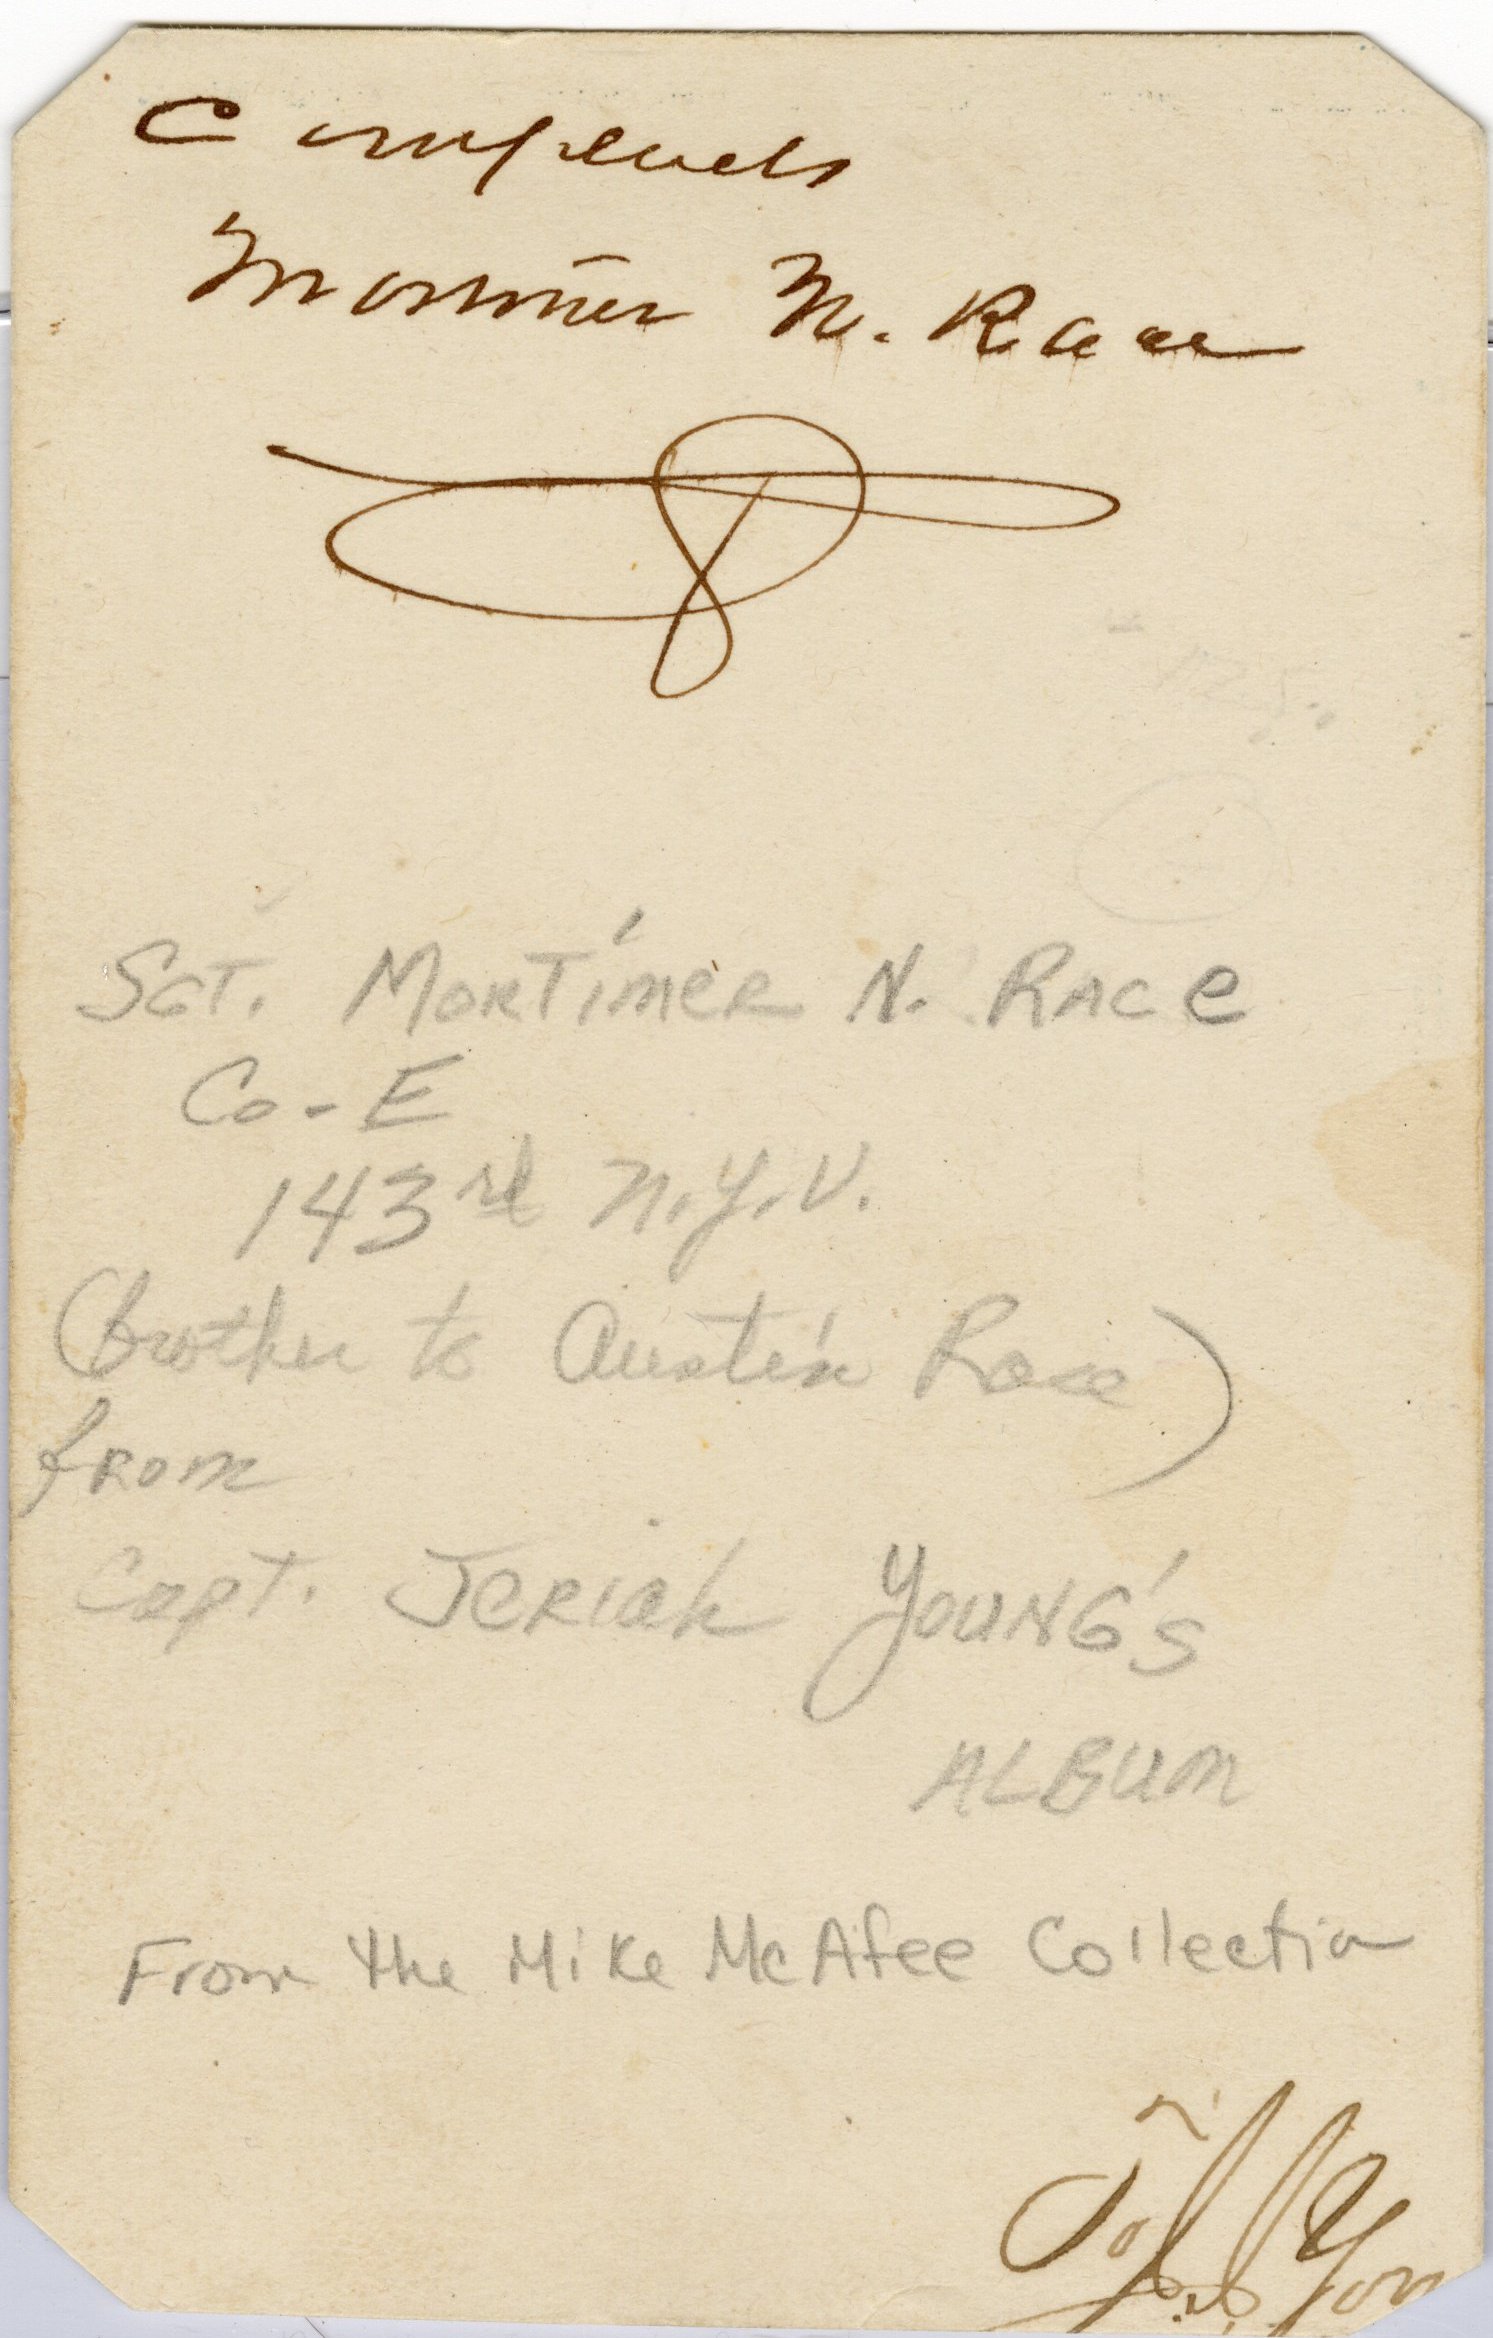 Mortimer N. Race
Sgt. Mortimer N. Race
Co-E
143rd N.Y.V.
(brother to Austin Race)
from
Capt. Jeriah Young's
Album
From the Mike McAfee Collection
To